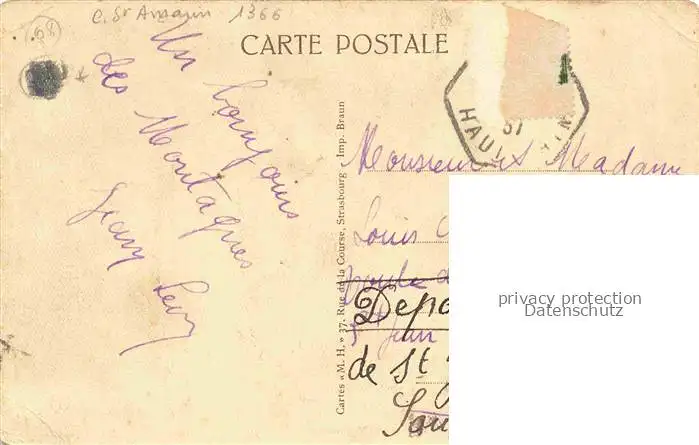 C. St Amarin 1366
68
CARTE POSTALE
Un bonjour
des Montagnes
Jean Levy
Cartes « M. H. » 37, Rue de la Course, Strasbourg - Imp. Braun
37
HAU
IN
Monsieur et Madame
Louis
St Jean
Depo
de St
Sou
privacy protection
Datenschutz